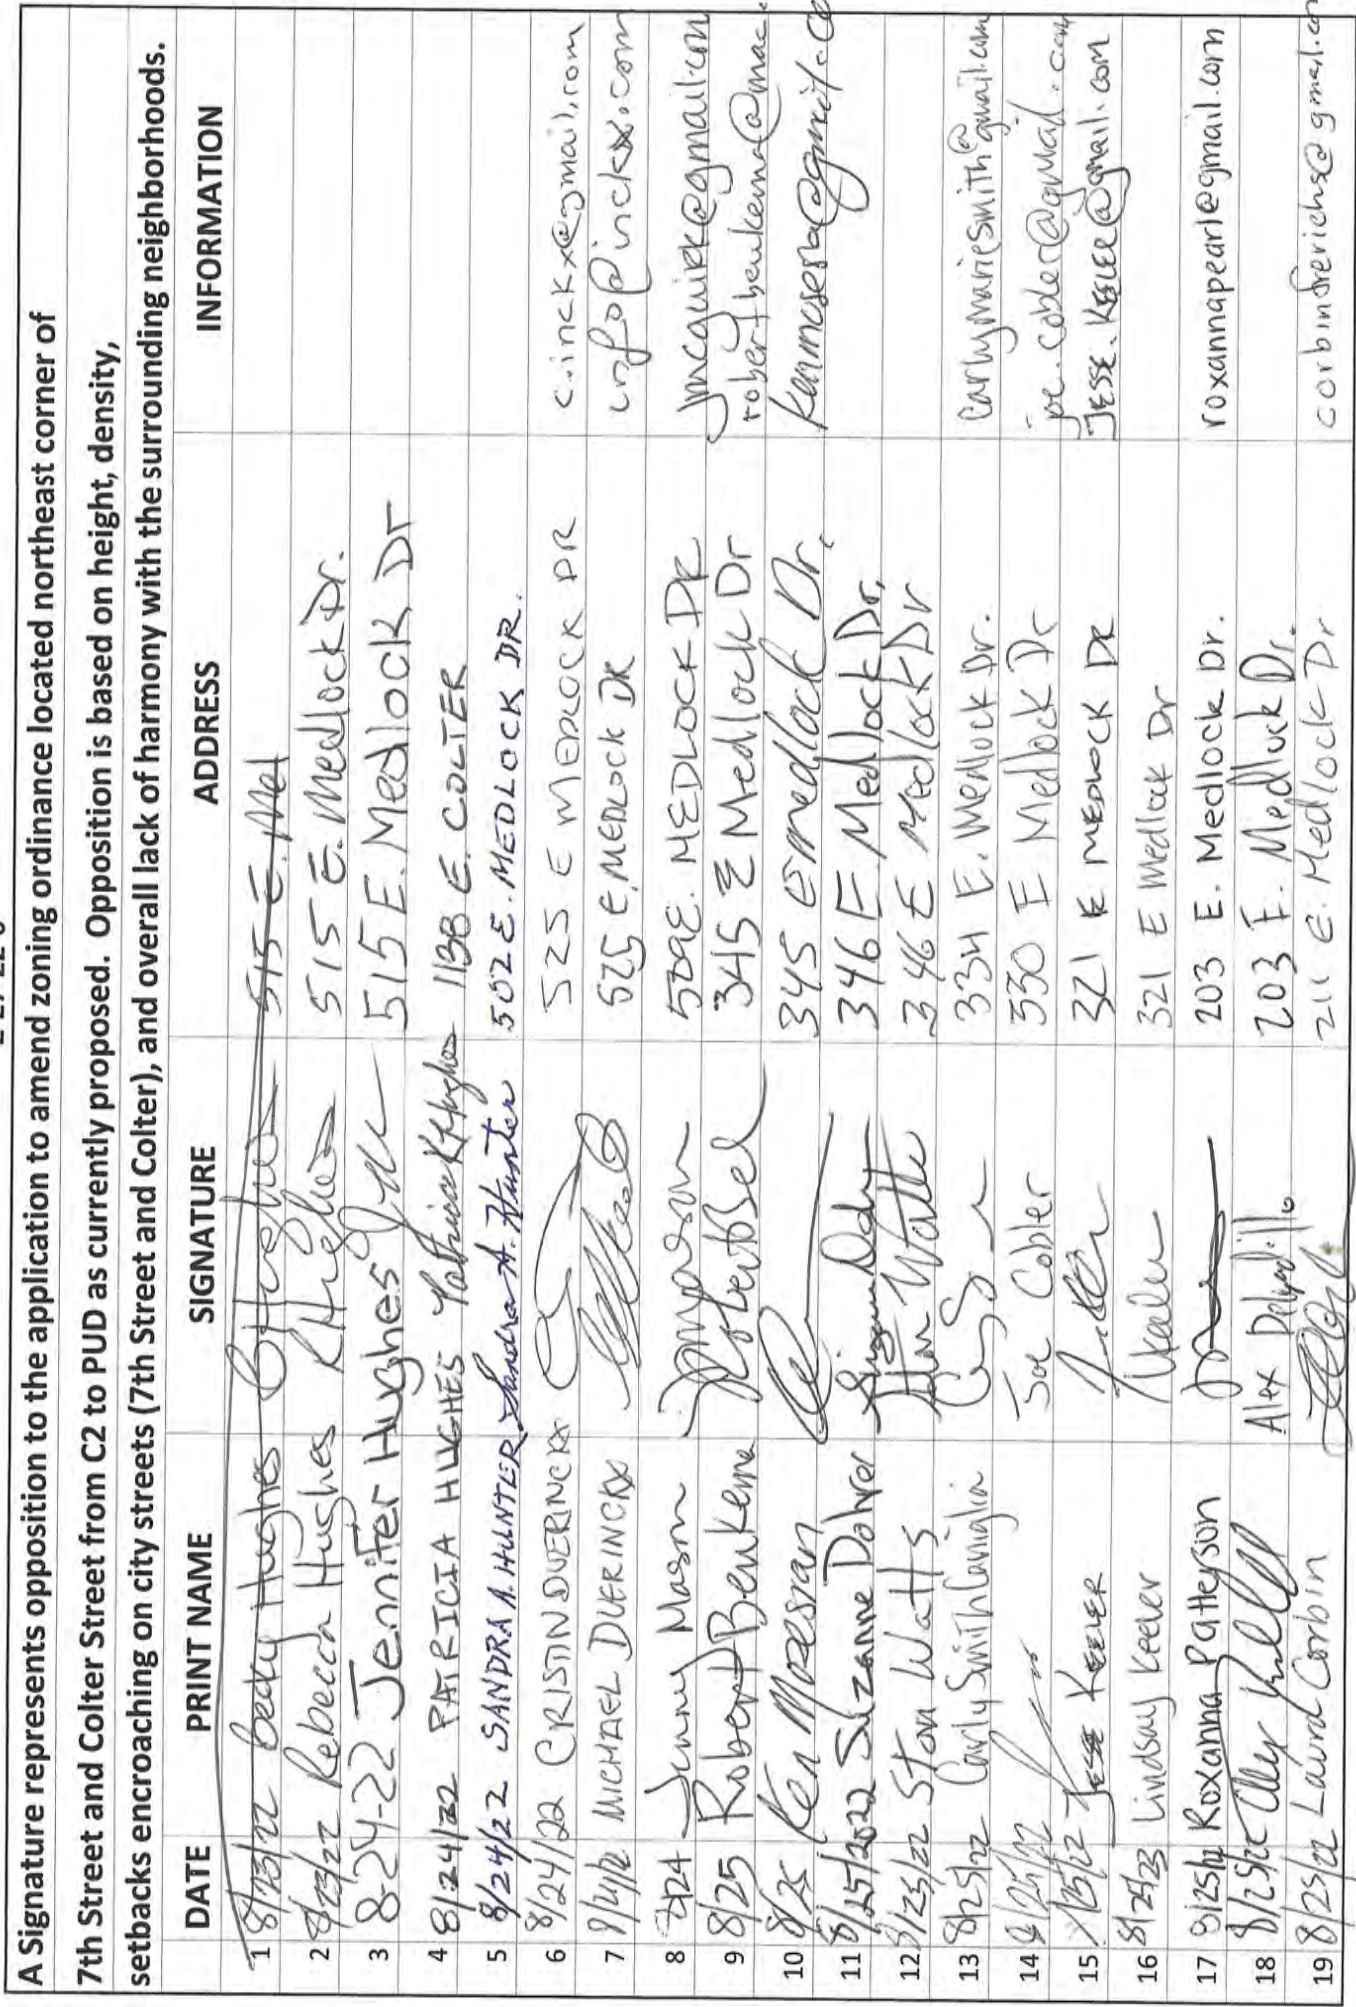 A Signature represents opposition to the application to amend zoning ordinance located northeast corner of
7th Street and Colter Street from C2 to PUD as currently proposed. Opposition is based on height, density,
setbacks encroaching on city streets (7th Street and Colter), and overall lack of harmony with the surrounding neighborhoods.
DATE PRINT NAME SIGNATURE ADDRESS INFORMATION
1 8/23/22 Becky Hughes B Hughes 515 E. Med
2 8/23/22 Rebecca Hughes R Hughes 515 E. Medlock Dr.
3 8-24-22 Jennifer Hughes 515 E. Medlock Dr
4 8/24/22 PATRICIA HUGHES Patricia K Hughes 1138 E. COLTER
5 8/24/22 SANDRA A. HUNTER Sandra A. Hunter 502 E. MEDLOCK DR.
6 8/24/22 CRISTIN DUERINCKX 525 E MEDLOCK DR c.inckx@gmail.com
7 MICHAEL DUERINCKX 525 E. MEDLOCK DR info@inckx.com
8 8/24 Jenny Mason 509 E. MEDLOCK DR jmcquirk@gmail.com
9 8/25 Robert Benkema 345 E Medlock Dr robertbeukema@mac.
10 8/25 Ken Mozesran 345 E medlock Dr.
11 8/25/2022 Suzanne Dohrer 346 E Medlock Dr.
12 8/25/22 Stan Watts 346 E Medlock Dr
13 8/25/22 Carly Smith Caniglia 334 E. Medlock Dr. Carlymariesmith@gmail.com
14 8/25/22 Joe Cobler 330 E Medlock Dr joe.cobler@gmail.com
15 8/25/22 JESSE KEELER 321 E MEDLOCK DR JESSE.KEELER@gmail.com
16 8/25/22 Lindsay Keeler 321 E Medlock Dr
17 8/25/22 Roxanna Patterson 203 E. Medlock Dr. roxannapearl@gmail.com
18 8/25/22 Alex Delgadillo 203 E. Medlock Dr.
19 8/25/22 Laura Corbin 211 E. Medlock Dr corbinfrerichs@gmail.com